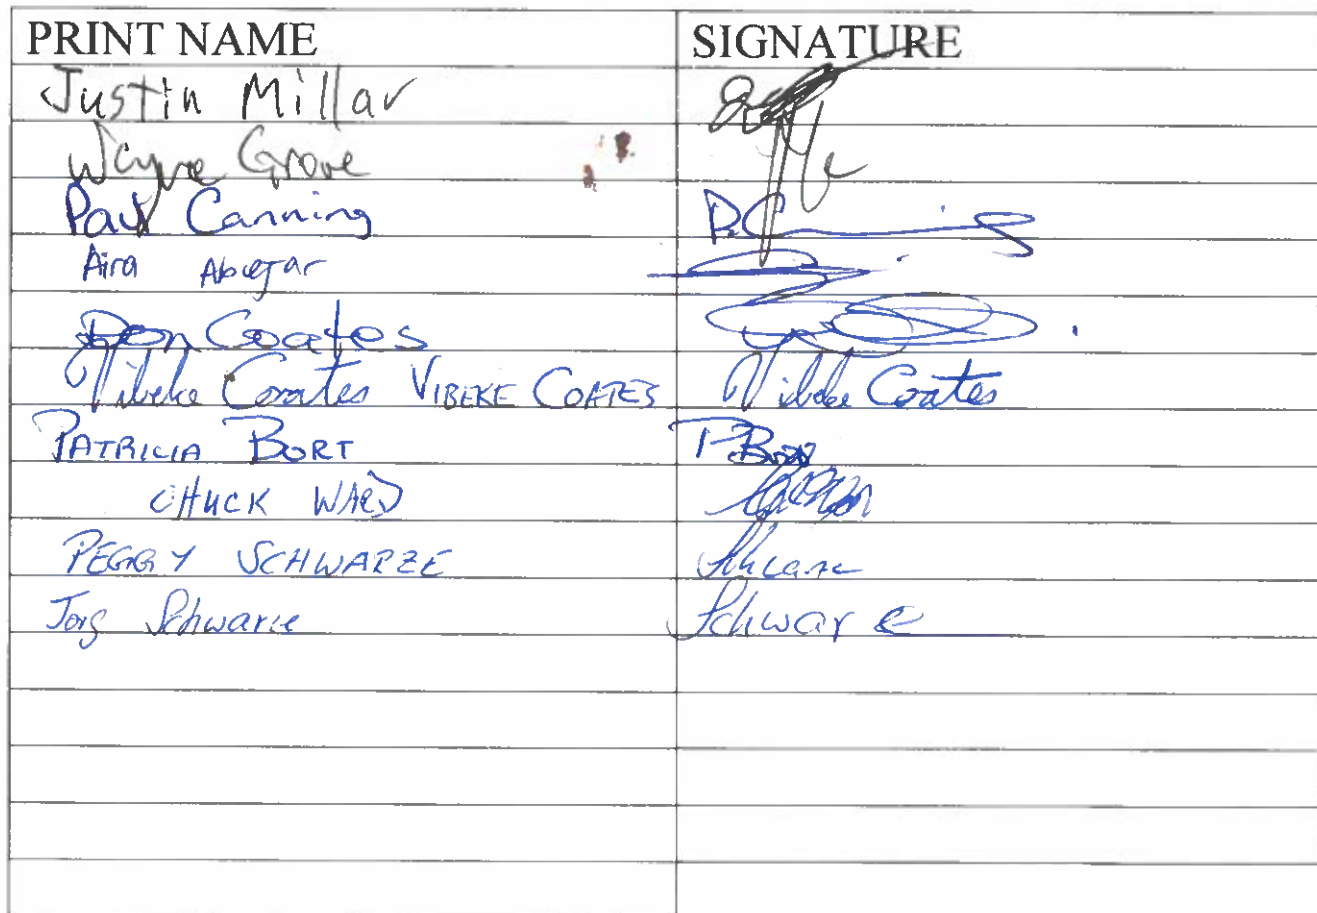 PRINT NAME SIGNATURE
Justin Millar
Wayne Grove
Paul Canning P. C
Aira Abuejar
Don Coates
Vibeke Coates VIBEKE COATES Vibeke Coates
PATRICIA BORT P Bort
CHUCK WARD
PEGGY SCHWARZE Schwarze
Jorg Schwarze Schwar e